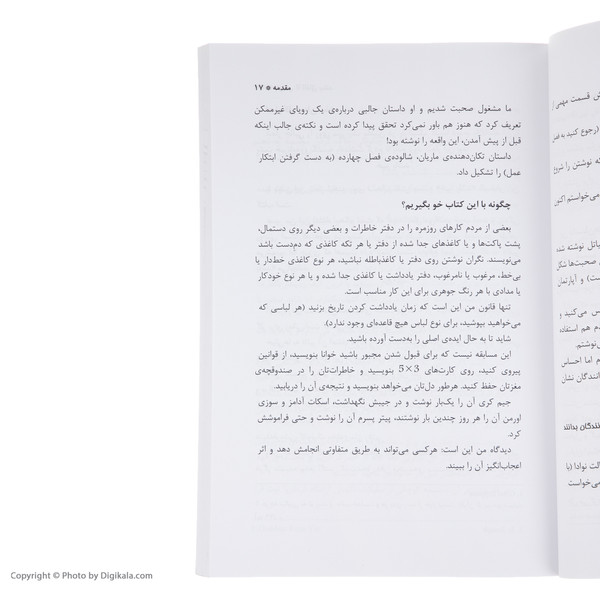 مقدمه * ۱۷
ما مشغول صحبت شدیم و او داستان جالبی درباره‌ی یک رویای غیرممکن
تعریف کرد که هنوز هم باور نمی‌کرد تحقق پیدا کرده است و نکته‌ی جالب اینکه
قبل از پیش آمدن، این واقعه را نوشته بود!
داستان تکان‌دهنده‌ی ماریان، شالوده‌ی فصل چهارده (به دست گرفتن ابتکار
عمل) را تشکیل داد.
چگونه با این کتاب خو بگیریم؟
بعضی از مردم کارهای روزمره را در دفتر خاطرات و بعضی دیگر روی دستمال،
پشت پاکت‌ها و یا کاغذهای جدا شده از دفتر یا هر تکه کاغذی که دم‌دست باشد
می‌نویسند. نگران نوشتن روی دفتر یا کاغذباطله نباشید، هر نوع کاغذی خط‌دار یا
بی‌خط، مرغوب یا نامرغوب، دفتر یادداشت یا کاغذی جدا شده و یا هر نوع خودکار
یا مدادی با هر رنگ جوهری برای این کار مناسب است.
تنها قانون من این است که زمان یادداشت کردن تاریخ بزنید (هر لباسی که
می‌خواهید بپوشید، برای نوع لباس هیچ قاعده‌ای وجود ندارد).
شاید تا به حال ایده‌ی اصلی را به‌دست آورده باشید.
این مسابقه نیست که برای قبول شدن مجبور باشید خوانا بنویسید، از قوانین
پیروی کنید، روی کارت‌های 3×5 بنویسید و خاطرات‌تان را در صندوقچه‌ی
مغزتان حفظ کنید. هرطور دل‌تان می‌خواهد بنویسید و نتیجه‌ی آن را دریابید.
جیم کری آن را یک‌بار نوشت و در جیبش نگهداشت، اسکات آدامز و سوزی
اورمن آن را هر روز چندین بار نوشتند، پیتر پسرم آن را نوشت و حتی فراموشش
کرد.
دیدگاه من این است: هرکسی می‌تواند به طریق متفاوتی انجامش دهد و اثر
اعجاب‌انگیز آن را ببیند.
ش قسمت مهمی از
(رجوع کنید به
که نوشتن را شروع
می‌خواستم اکنون
نوشته شد
صحبت‌ها شکل
و آپارتمان
س می‌کنید و
دم هم استفاده
نوشتم.
م اما احساس
انندگان نشان
نندگان بدانند
الت نوادا (با
می‌خواست
Copyright © Photo by Digikala.com